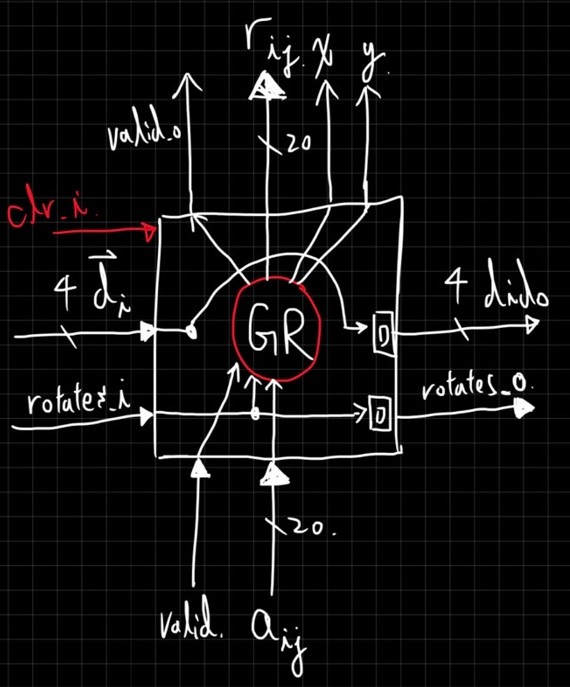 r_ij x y
valid_o
20
clr_i
4 d_i
GR
4 dido
D
rotates_i
rotates_o
D
20
valid a_ij